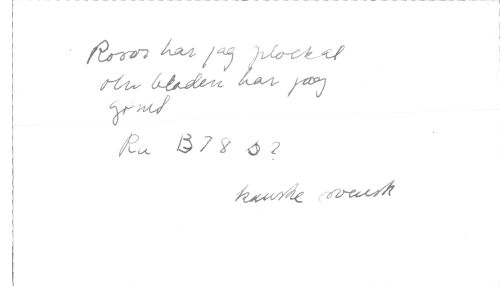 Rosor har jag plockat
och bladen har jag
gömt
Ru B 78 s?
kanske svensk